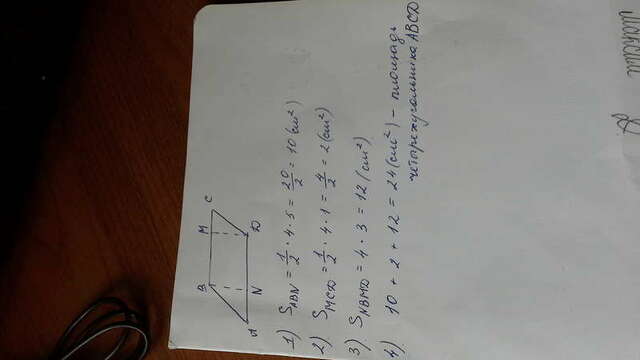 B M C
A N D
1) S ABN = 1/2 · 4 · 5 = 20/2 = 10 (см²)
2) S MCD = 1/2 · 4 · 1 = 4/2 = 2 (см²)
3) S NBMD = 4 · 3 = 12 (см²)
4) 10 + 2 + 12 = 24 (см²) – площадь
четырехугольника ABCD